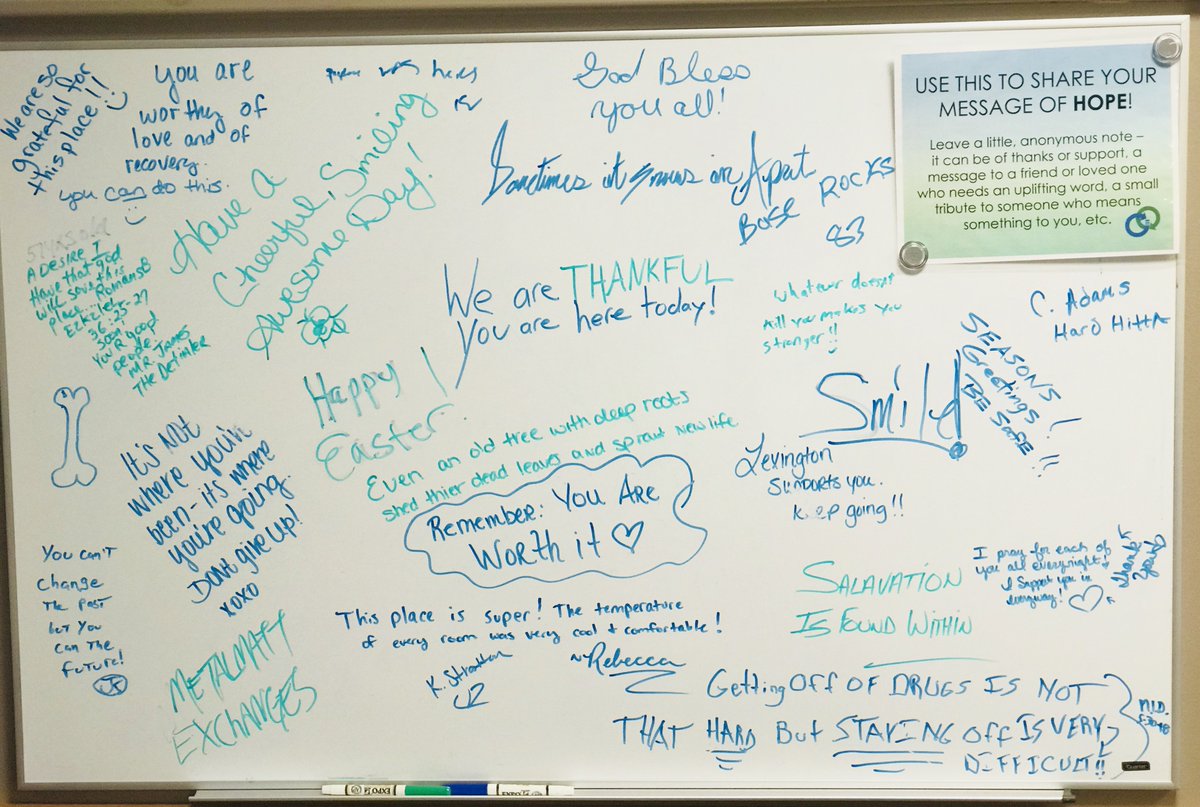 We are so
grateful for
this place!!
you are
worthy of
love and of
recovery.
you can do this.
was here
God Bless
you all!
Have A
Cheerful, Smiling
Awesome Day!
Sometimes it snows in April
Bose ROCKS
83
USE THIS TO SHARE YOUR
MESSAGE OF HOPE!
Leave a little, anonymous note –
it can be of thanks or support, a
message to a friend or loved one
who needs an uplifting word, a small
tribute to someone who means
something to you, etc.
A DESIRE I
Have that god
will save this
place. Romans 8
Ezkziel-
36-25-27
Soon.
You R good
people.
MR. James
THE Detimler
We are THANKFUL
You are here today!
whatever doesn't
kill you makes you
stronger!!
C. Adams
Hard HittA
SEASONS
Greetings!
BE Safe!!
Happy
Easter!
Smile!
Even an old tree with deep roots
shed thier dead leaves and sprout new life
Remember: You Are
Worth it
Lexington
supports you.
keep going!!
It's NOT
where you'n
been - it's where
you're going.
Dont give up!
xoxo
You can't
change
the past
but you
can the
future!
JK
I pray for each of
you all everynight!
I support you in
everyway!
Thank
you
SALAVATION
IS FOUND WITHIN
This place is super! The temperature
of every room was very cool & comfortable!
~Rebecca
K. Stratton
METALMATT
EXCHANGES
Getting Off OF DRUGS IS NOT
THAT HARD But STAYING Off IS VERY
DIFFICULT!!
EXPO
EXPO
Quartet